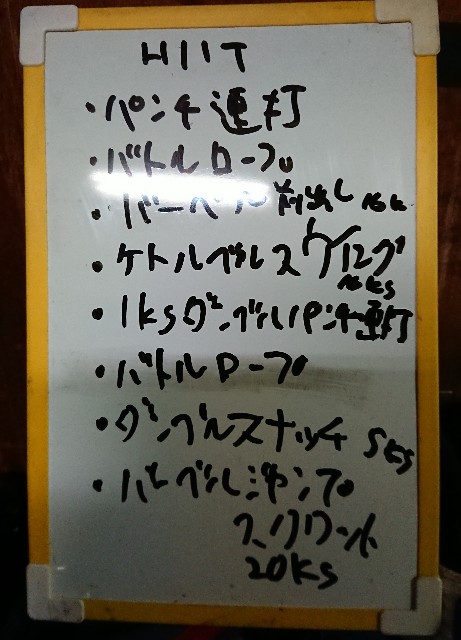 HIIT
・パンチ連打
・バトルロープ
・バーベル前出し
・ケトルベルスウィング
16kg
・1kgダンベルパンチ連打
・バトルロープ
・ダンベルスナッチ 5kg
・バーベルジャンプ
スクワット
20kg